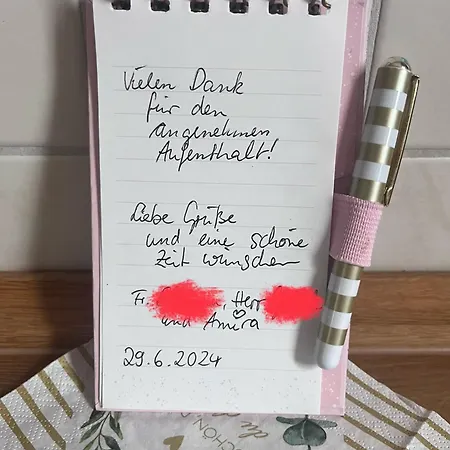 Vielen Dank
für den
angenehmen
Aufenthalt!
Liebe Grüße
und eine schöne
Zeit wünschen
Fr , Herr
und Amira
29.6.2024
SCHÖN
du